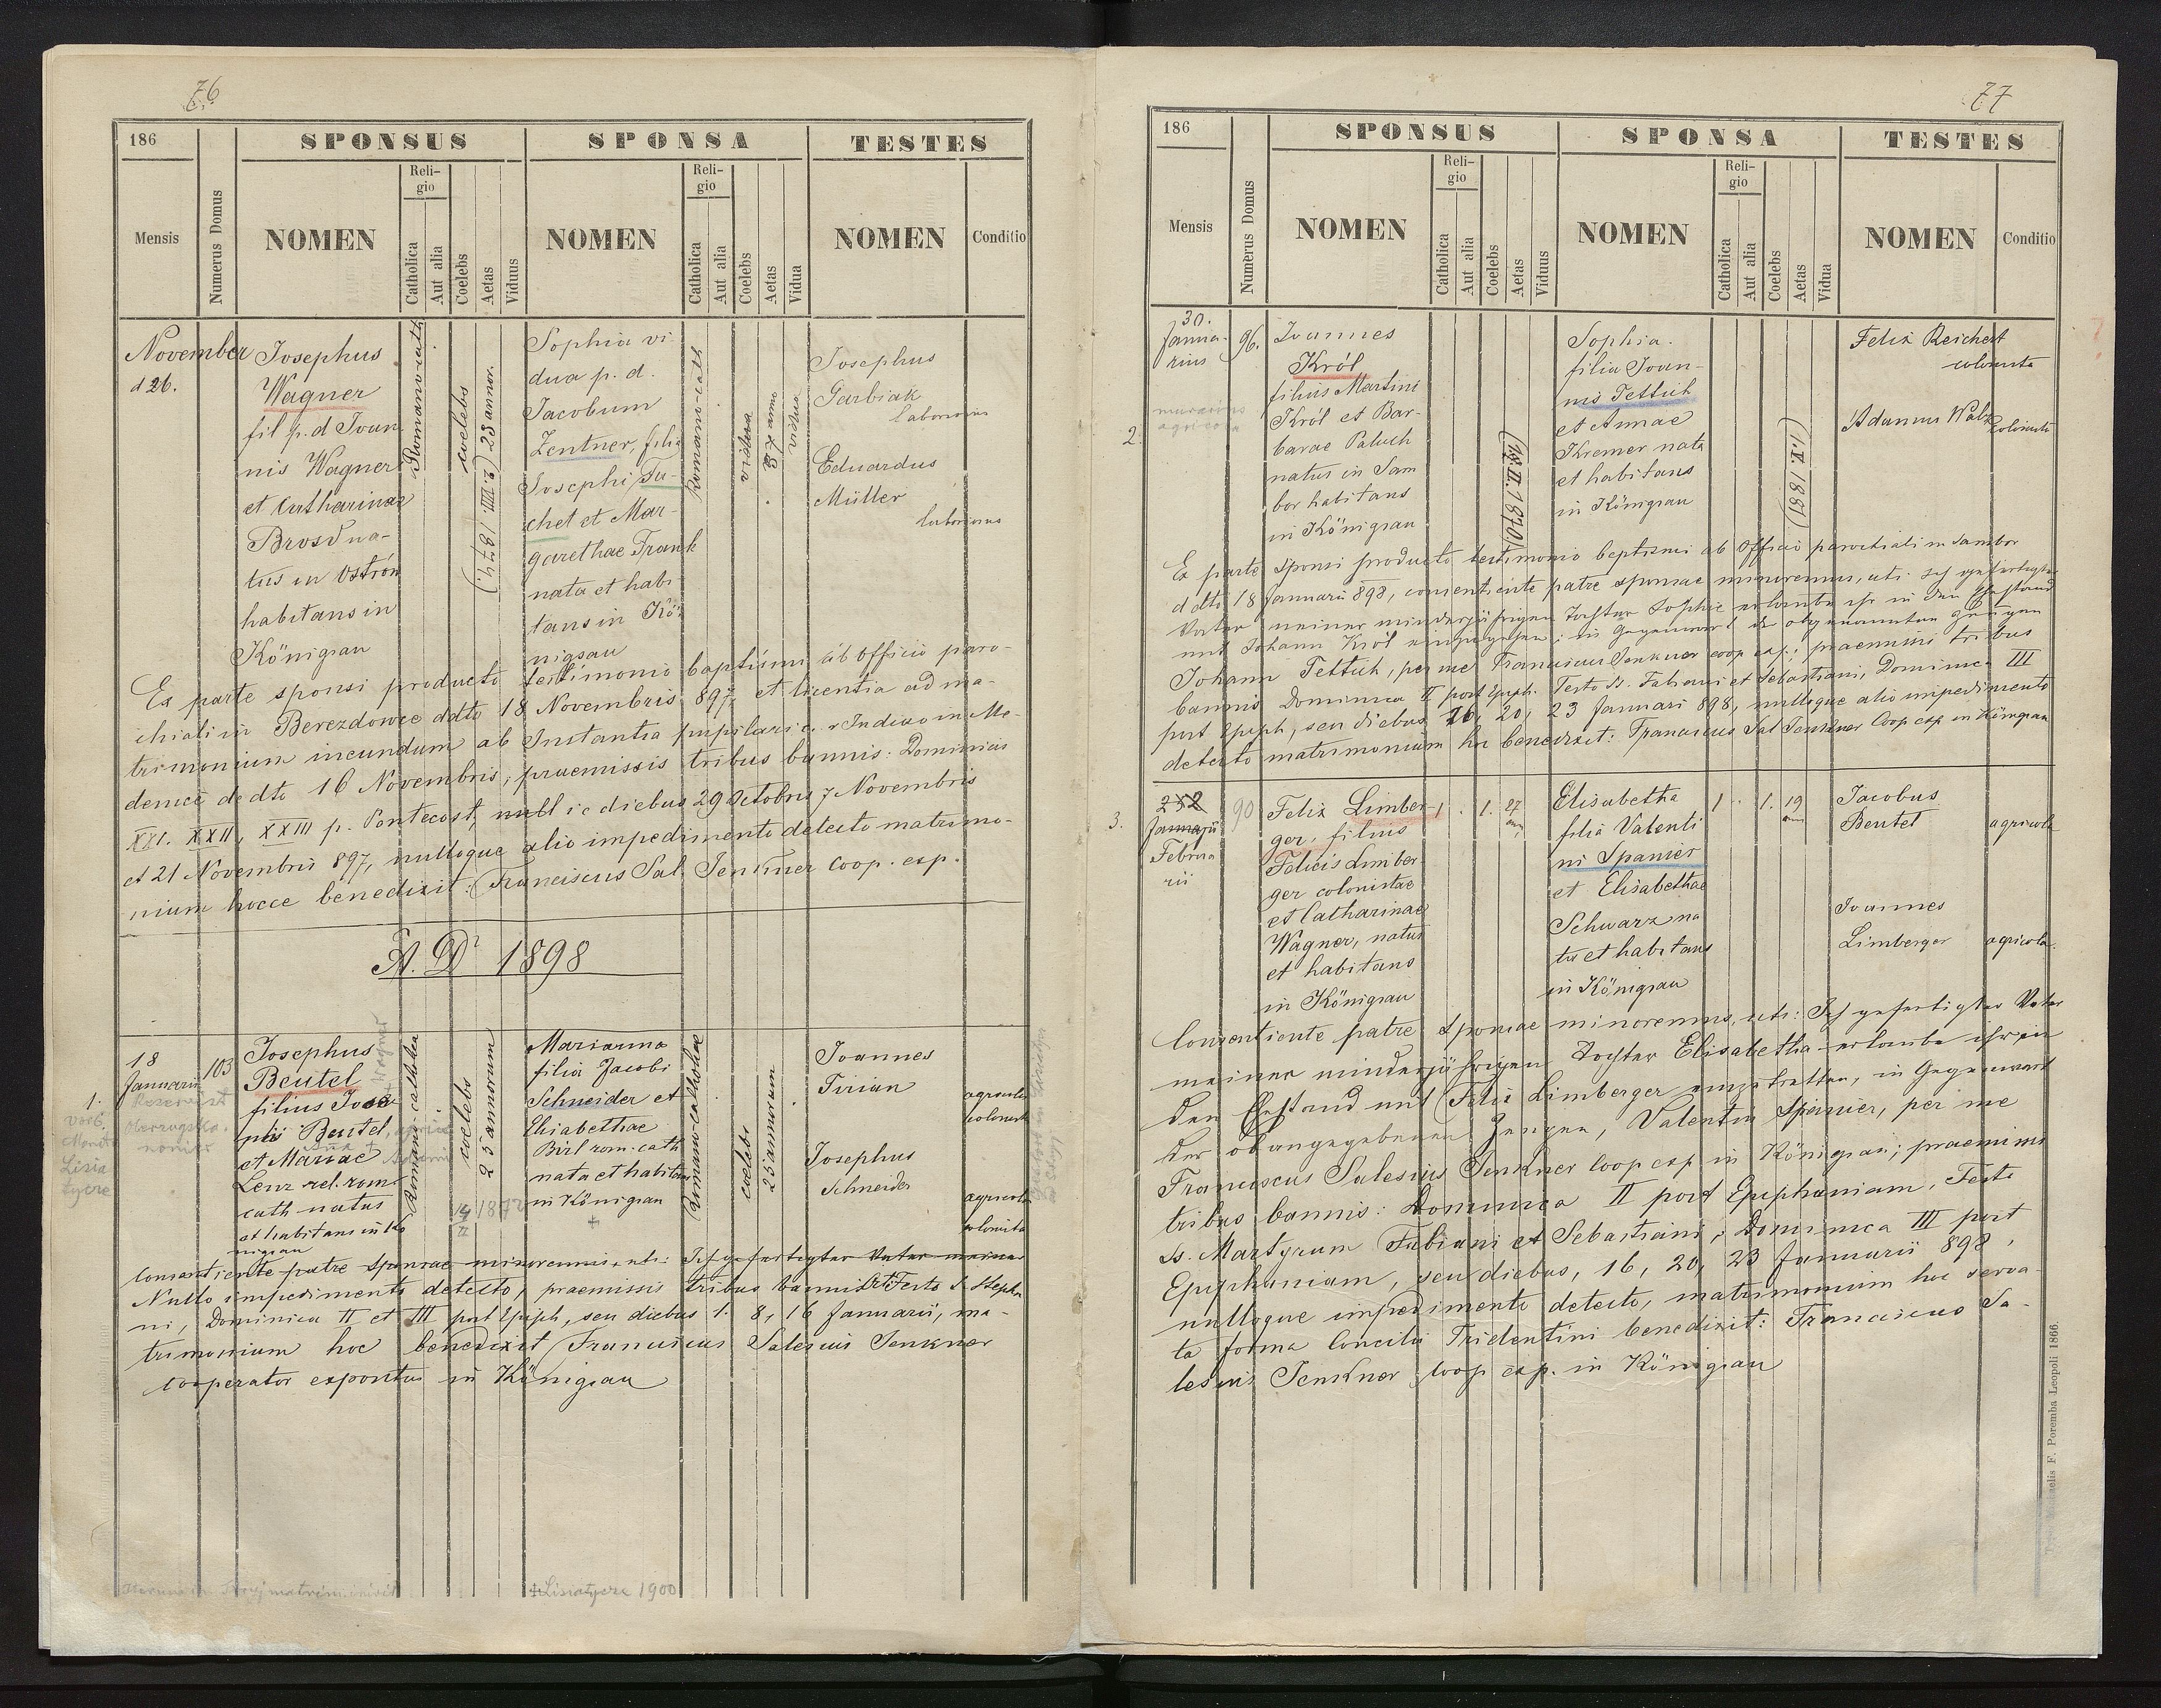 76
186
SPONSUS
SPONSA
TESTES
Mensis
Numerus Domus
NOMEN
Reli-
gio
Catholica
Aut alia
Coelebs
Aetas
Viduus
NOMEN
Reli-
gio
Catholica
Aut alia
Coelebs
Aetas
Vidua
NOMEN
Conditio
November
d 26.
Josephus
Wagner
fil p. d Joan
nis Wagner
et Catharinae
Brosd na-
tus in Ostrón
habitans in
Königsau
Romano-cath
coelebs
23 annor.
(2. VIII. 1874.)
Sophia vi
dua p. d.
Jacobum
Zentner, filia
Josephi Tu-
chet et Mar-
garethae Frank
nata et habi
tans in Kö-
nigsau
Romano-cath
vidua
vidua
Josephus
Garbiak
laborans
Eduardus
Müller
Ex parte sponsi producto testimonio baptismi ab officio paro-
chiali in Berezdowce ddto 18 Novembris 897, et licentia ad ma-
trimonium ineundum ab Instantia pupilari c. r Indicio in Me-
denice de dto 16 Novembris, praemissis tribus bannis: Dominicis
XXI. XXII, XXIII p. Pentecost, diebus 29 Octobris 7 Novembris
et 21 Novembris 897, nulloque alio impedimento detecto matrimo-
nium hocce benedixit: Franciscus Sal. Jenkner coop. exp.
A. D. 1898
1.
18
Januarii
103
Josephus
Beutel
filius
Beutel
et Mariae
Lenz rel. rom
cath natus
et habitans in Kö
nigsau
Romano-catholica
coelebs
25 annorum
Marianna
filia Jacobi
Schneider et
Elisabethae
Birl rom. cath
nata et habitans
in Königsau
Romano-catholica
coelebs
23 annorum
Joannes
Tirian
agricola
colonista
Josephus
Schneider
agricola
colonista
Consentiente patre sponsae minorennis, uti: Ich gefertigter Vater meiner
Nullo impedimento detecto, praemissis tribus bannis: Festo S. Stepha
ni, Dominica II et III post Epiph, seu diebus 1. 8, 16 Januarii, ma-
trimonium hoc benedixit Franciscus Salesius Jenkner
cooperator expositus in Königsau
Lisiatycze 1900
77
186
SPONSUS
SPONSA
TESTES
Mensis
Numerus Domus
NOMEN
Reli-
gio
Catholica
Aut alia
Coelebs
Aetas
Viduus
NOMEN
Reli-
gio
Catholica
Aut alia
Coelebs
Aetas
Vidua
NOMEN
Conditio
2.
30.
Janua-
rius
96.
Joannes
Król
filius Martini
Król et Bar-
barae Paluch
natus in Sam
bor habitans
in Königsau
Sophia.
filia Joan-
nis Tettich
et Annae
Kremer nata
et habitans
in Königsau
(1. X. 1881)
Felix Reichert
colonista
Adamus Walz
colonista
Ex parte sponsi producto testimonio baptismi ab Officio parochiali in Sambor
d dto 18 Januarii 898, consentiente patre sponsae minorennis, uti: Ich gefertigter
Vater meiner minderjährigen Tochter Sophie erlaube ihr in den Ehestand
mit Johann Król einzugehen; in Gegenwart der obgenannten Zeugen
Johann Tettich, per me Franciscus Jenkner coop exp; praemissis tribus
bannis Dominica II post Epiph. Festo SS. Fabiani et Sebastiani, Dominica III
post Epiph, seu diebus 16, 20, 23 Januari 898, nulloque alio impedimento
detecto matrimonium hoc benedixit: Franciscus Sal Jenkner Coop exp in Königsau
3.
Januarii
Februa
rii
90
Felix Limber
ger, filius
Felicis Limber
ger colonistae
et Catharinae
Wagner, natus
et habitans
in Königsau
1
1.
27
ann
Elisabetha
filia Valenti
ni Spanier
et Elisabethae
Schwarz na
ta et habitans
in Königsau
1
1.
19
ann
Jacobus
Beutel
agricola
Joannes
Limberger
agricola
Consentiente patre sponsae minorennis, uti: Ich gefertigter Vater
meiner minderjährigen Tochter Elisabetha erlaube ihr in
den Ehestand mit Felix Limberger einzutretten, in Gegenwart
der obangegebenen Zeugen, Valentin Spanier, per me
Franciscus Salesius Jenkner coop exp in Königsau; praemissis
tribus bannis: Dominica II post Epiphaniam, Festo
Ss. Martyrum Fabiani et Sebastiani, Dominica III post
Epiphaniam, seu diebus, 16, 20, 23 Januarii 898,
nulloque impedimento detecto, matrimonium hoc serva-
ta forma Concilii Tridentini benedixit: Franciscus Sa-
lesius Jenkner coop exp. in Königsau
F. Poremba Leopoli 1866.